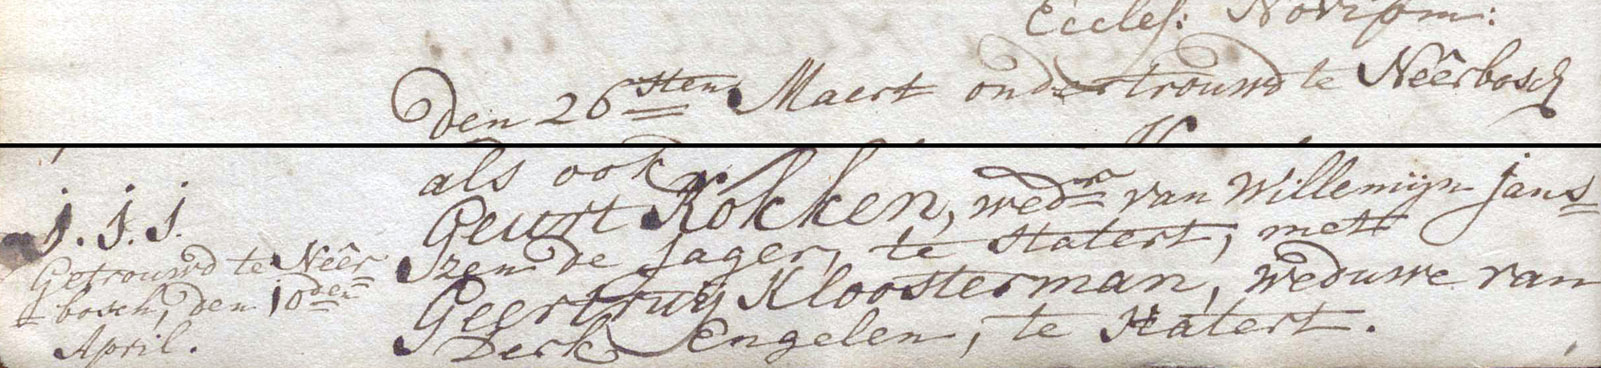 Eccles: Noviom:
Den 26sten Maert ondertrouwd te Neêrbosch
als ook
Geurt Kokken, wedr van Willemijn Jans=
zen de Jager, te Hatert, met
Geertruij Kloosterman, weduwe van
Derk Engelen, te Hatert.
j. j. j.
Getrouwd te Neêr
=bosch, den 10den
April.